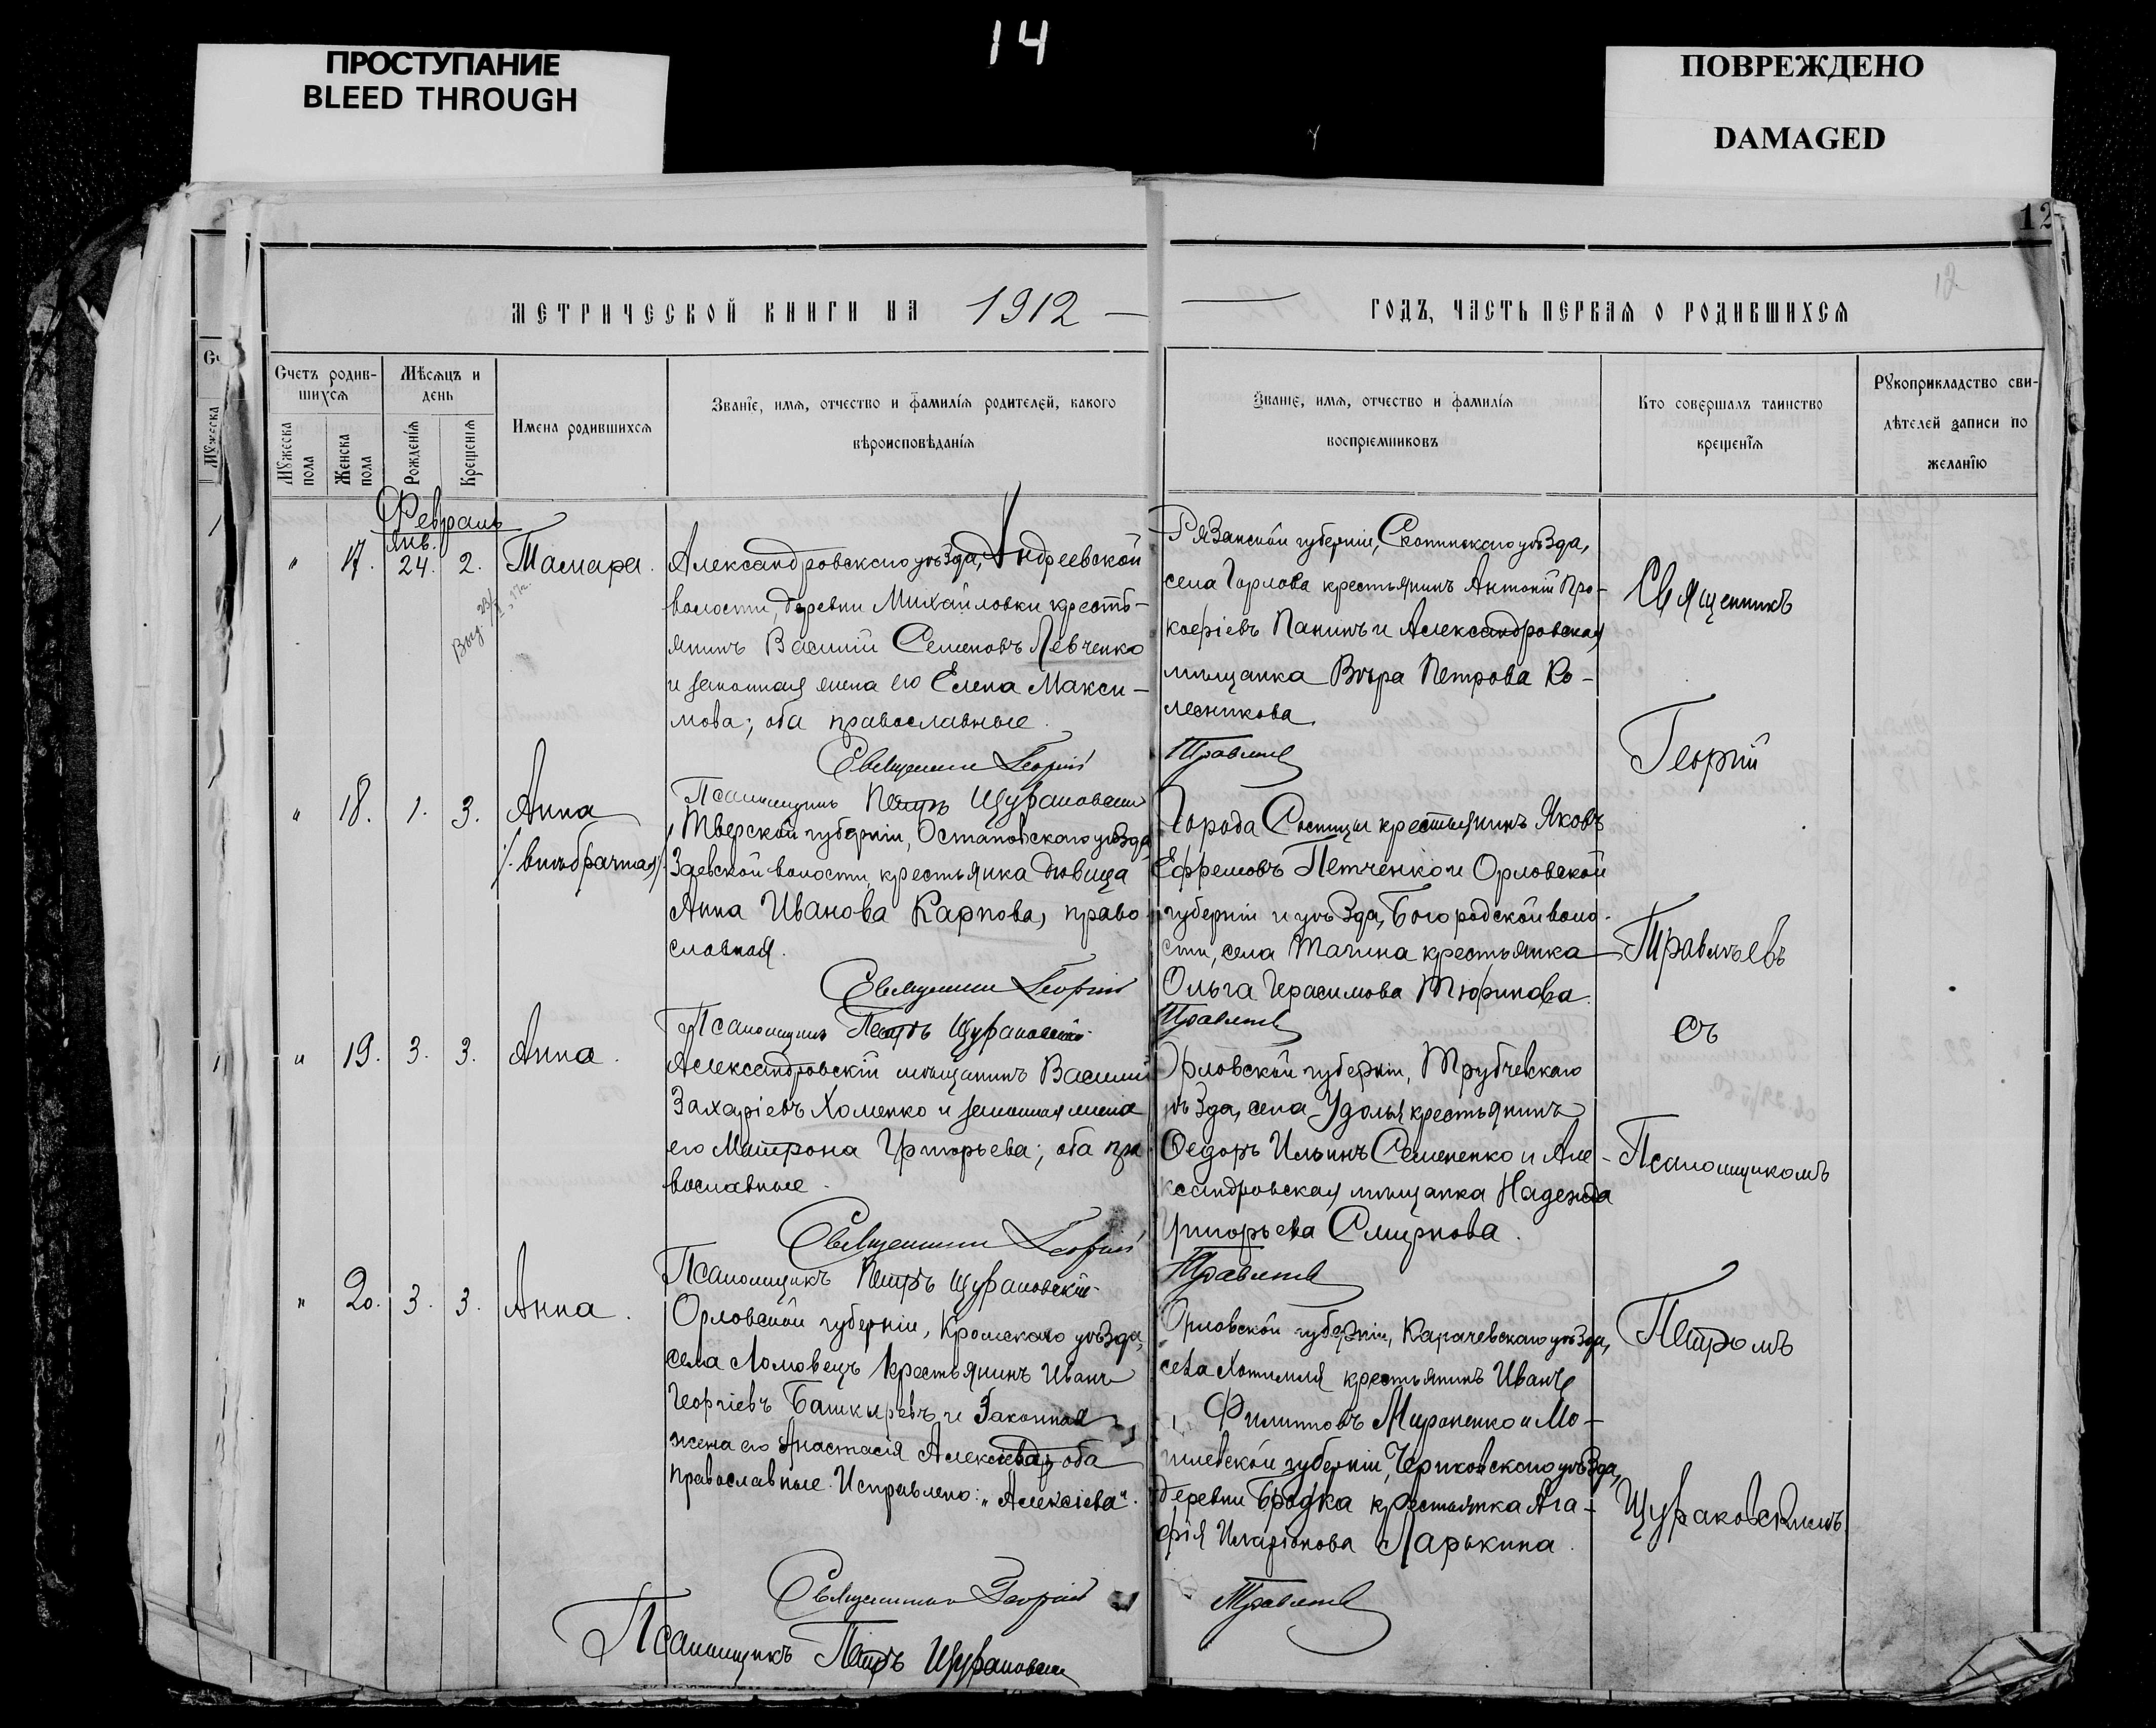 14
ПРОСТУПАНИЕ
BLEED THROUGH
ПОВРЕЖДЕНО
DAMAGED
12
12
МЕТРИЧЕСКОЙ КНИГИ НА 1912
ГОДЪ, ЧАСТЬ ПЕРВАЯ О РОДИВШИХСЯ
Счетъ родив-
шихся
Мужеска пола
Женска пола
Мѣсяцъ и
день
Рожденія
Крещенія
Имена родившихся
Званіе, имя, отчество и фамилія родителей, какого
вѣроисповѣданія
Званіе, имя, отчество и фамилія
воспріемниковъ
Кто совершалъ таинство
крещенія
Рукоприкладство сви-
дѣтелей записи по
желанію
Февраль
Янв.
" 17. 24. 2. Тамара.
Александровскаго уѣзда, Андреевской
волости, деревни Михайловки кресть-
янинъ Василій Семеновъ Левченко
и законная жена его Елена Макси-
мова; оба православные.
Священникъ Георгій
Псаломщикъ Петръ Щураковскій
Рязанской губерніи, Скопинскаго уѣзда,
села Горлова крестьянинъ Антоній Про-
кофіевъ Панинъ и Александровская
мѣщанка Вѣра Петрова Ко-
лесникова.
Травлѣевъ
" 18. 1. 3. Анна
/внѣбрачная/.
Тверской губерніи, Осташовскаго уѣзда
Заевской волости, крестьянка дѣвица
Анна Иванова Карпова, право-
славная.
Священникъ Георгій
Псаломщикъ Петръ Щураковскій
Города Сосницы крестьянинъ Яковъ
Ефремовъ Петченко и Орловской
губерніи и уѣзда, Богородской воло-
сти, села Тагина крестьянка
Ольга Герасимова Тюрикова.
Травлѣевъ
" 19. 3. 3. Анна.
Александровскій мѣщанинъ Василій
Захаріевъ Хоменко и законная жена
его Матрона Григорьева; оба пра-
вославные.
Священникъ Георгій
Псаломщикъ Петръ Щураковскій
Орловской губерніи, Трубчевскаго
уѣзда, села Удолья крестьянинъ
Ѳедоръ Ильинъ Семененко и Але-
ксандровская мѣщанка Надежда
Григорьева Смирнова.
Травлѣевъ
" 20. 3. 3. Анна.
Орловской губерніи, Кромскаго уѣзда,
села Ломовецъ крестьянинъ Иванъ
Георгіевъ Башкыревъ и законная
жена его Анастасія Алексіева; оба
православные. Исправлено: "Алексіева".
Священникъ Георгій
Псаломщикъ Петръ Щураковскій
Орловской губерніи, Карачевскаго уѣзда,
села Хотимля крестьянинъ Иванъ
Филипповъ Мироненко и Мо-
гилевской губерніи, Чериковскаго уѣзда,
деревни Бродка крестьянка Ага-
фія Иларіонова Ларькина.
Травлѣевъ
Священникъ
Георгій
Травлѣевъ
съ
Псаломщикомъ
Петромъ
Щураковскимъ.